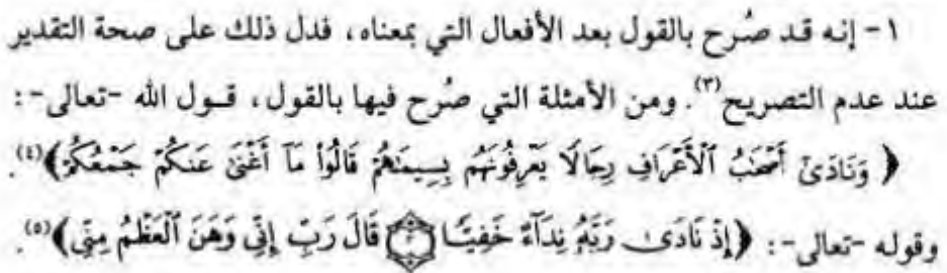 ١ - إنه قد صُرح بالقول بعد الأفعال التي بمعناه ، فدل ذلك على صحة التقدير
عند عدم التصريح(٣). ومن الأمثلة التي صُرح فيها بالقول ، قـول الله -تعالى- :
﴿ وَنَادَىٰٓ أَصْحَٰبُ ٱلْأَعْرَافِ رِجَالًا يَعْرِفُونَهُم بِسِيمَىٰهُمْ قَالُوا۟ مَآ أَغْنَىٰ عَنكُمْ جَمْعُكُمْ ﴾(٤).
وقوله -تعالى- : ﴿إِذْ نَادَىٰ رَبَّهُۥ نِدَآءً خَفِيًّا ۝٣ قَالَ رَبِّ إِنِّي وَهَنَ ٱلْعَظْمُ مِنِّي﴾(٥).